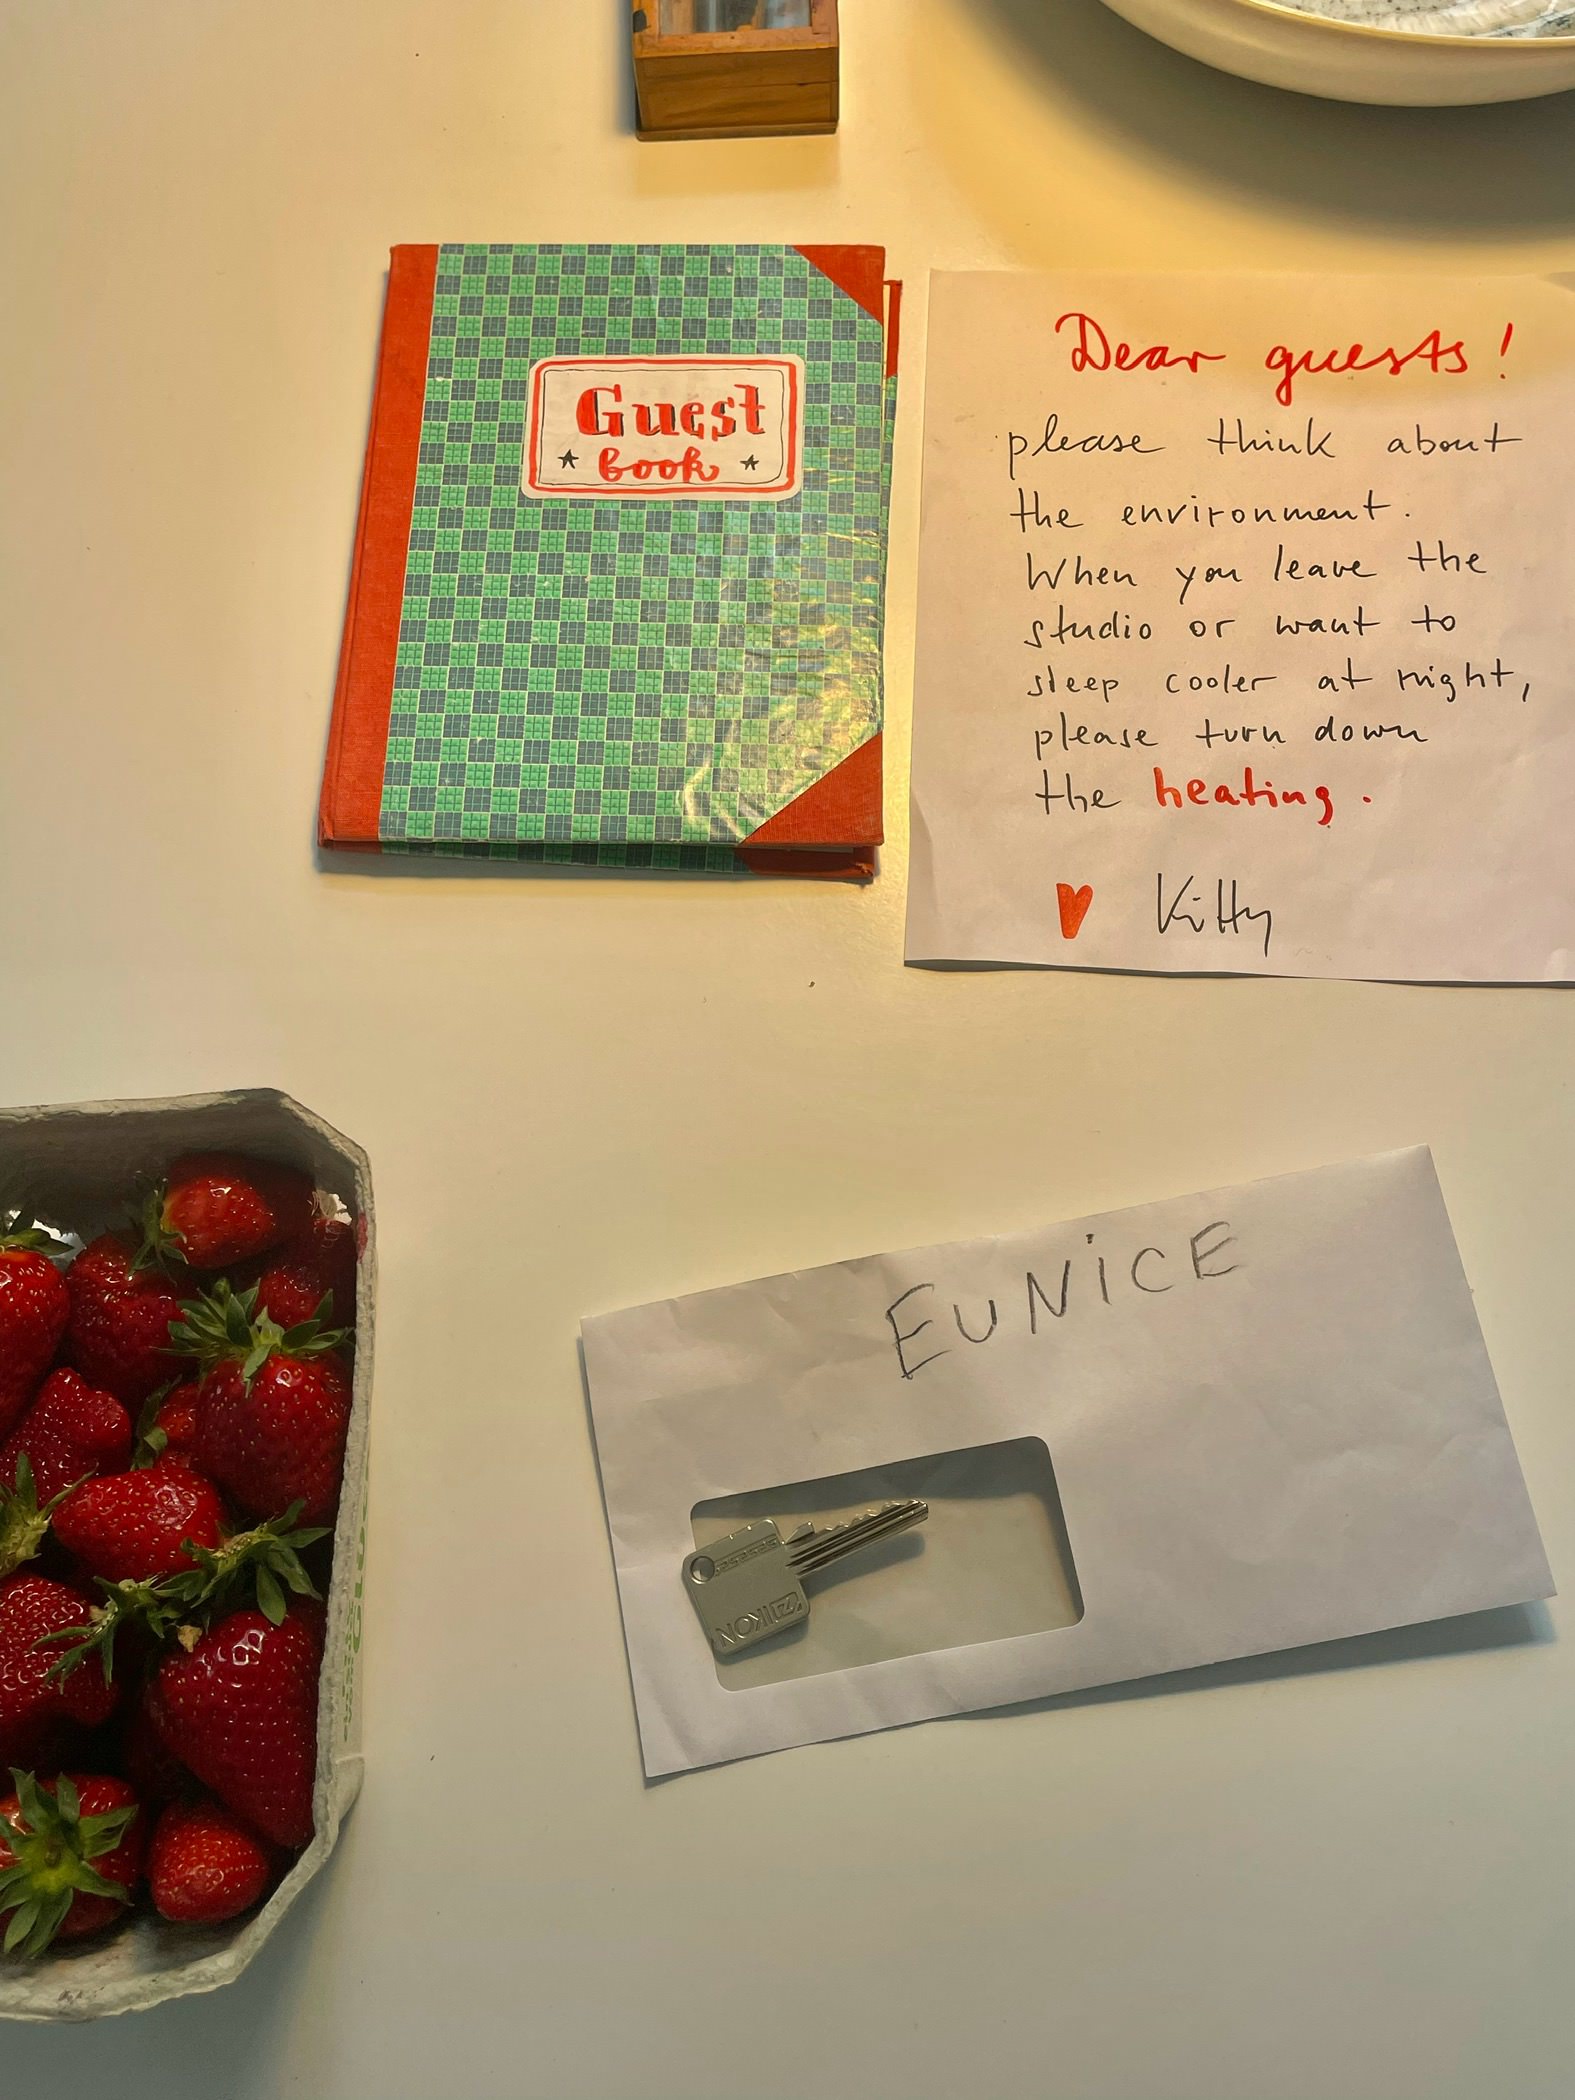 Guest
book
Dear guests!
please think about
the environment.
When you leave the
studio or want to
sleep cooler at night,
please turn down
the heating.
Kitty
EUNiCE
IKON